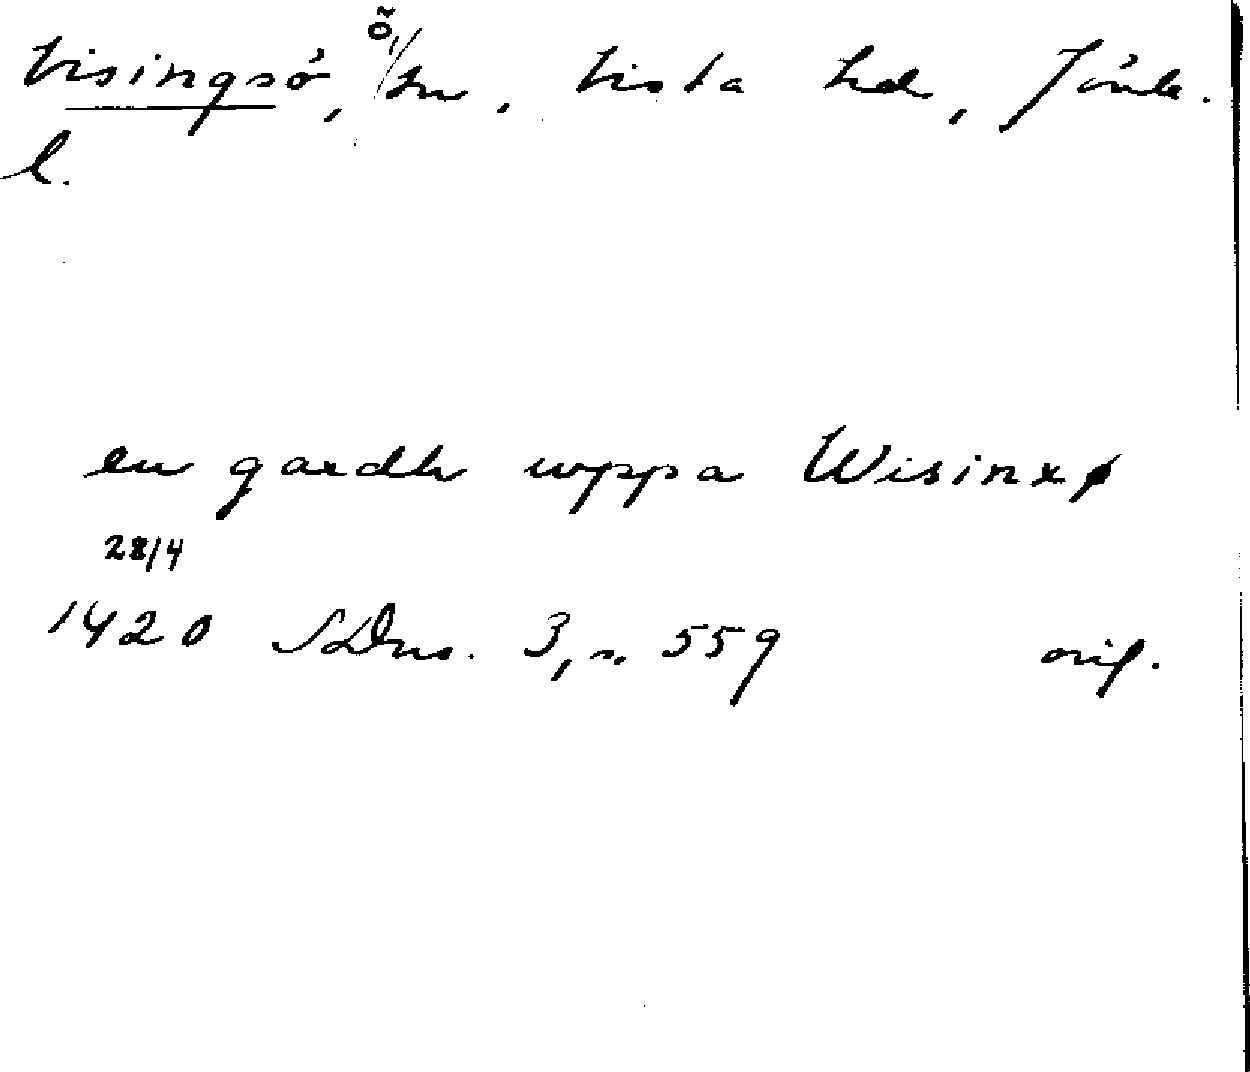 Visingsö, ö,/sn, Vista hd, Jönk.
l.
en gardh uppa Wisinxø
28/4
1420 SDns. 3, s. 559 orig.